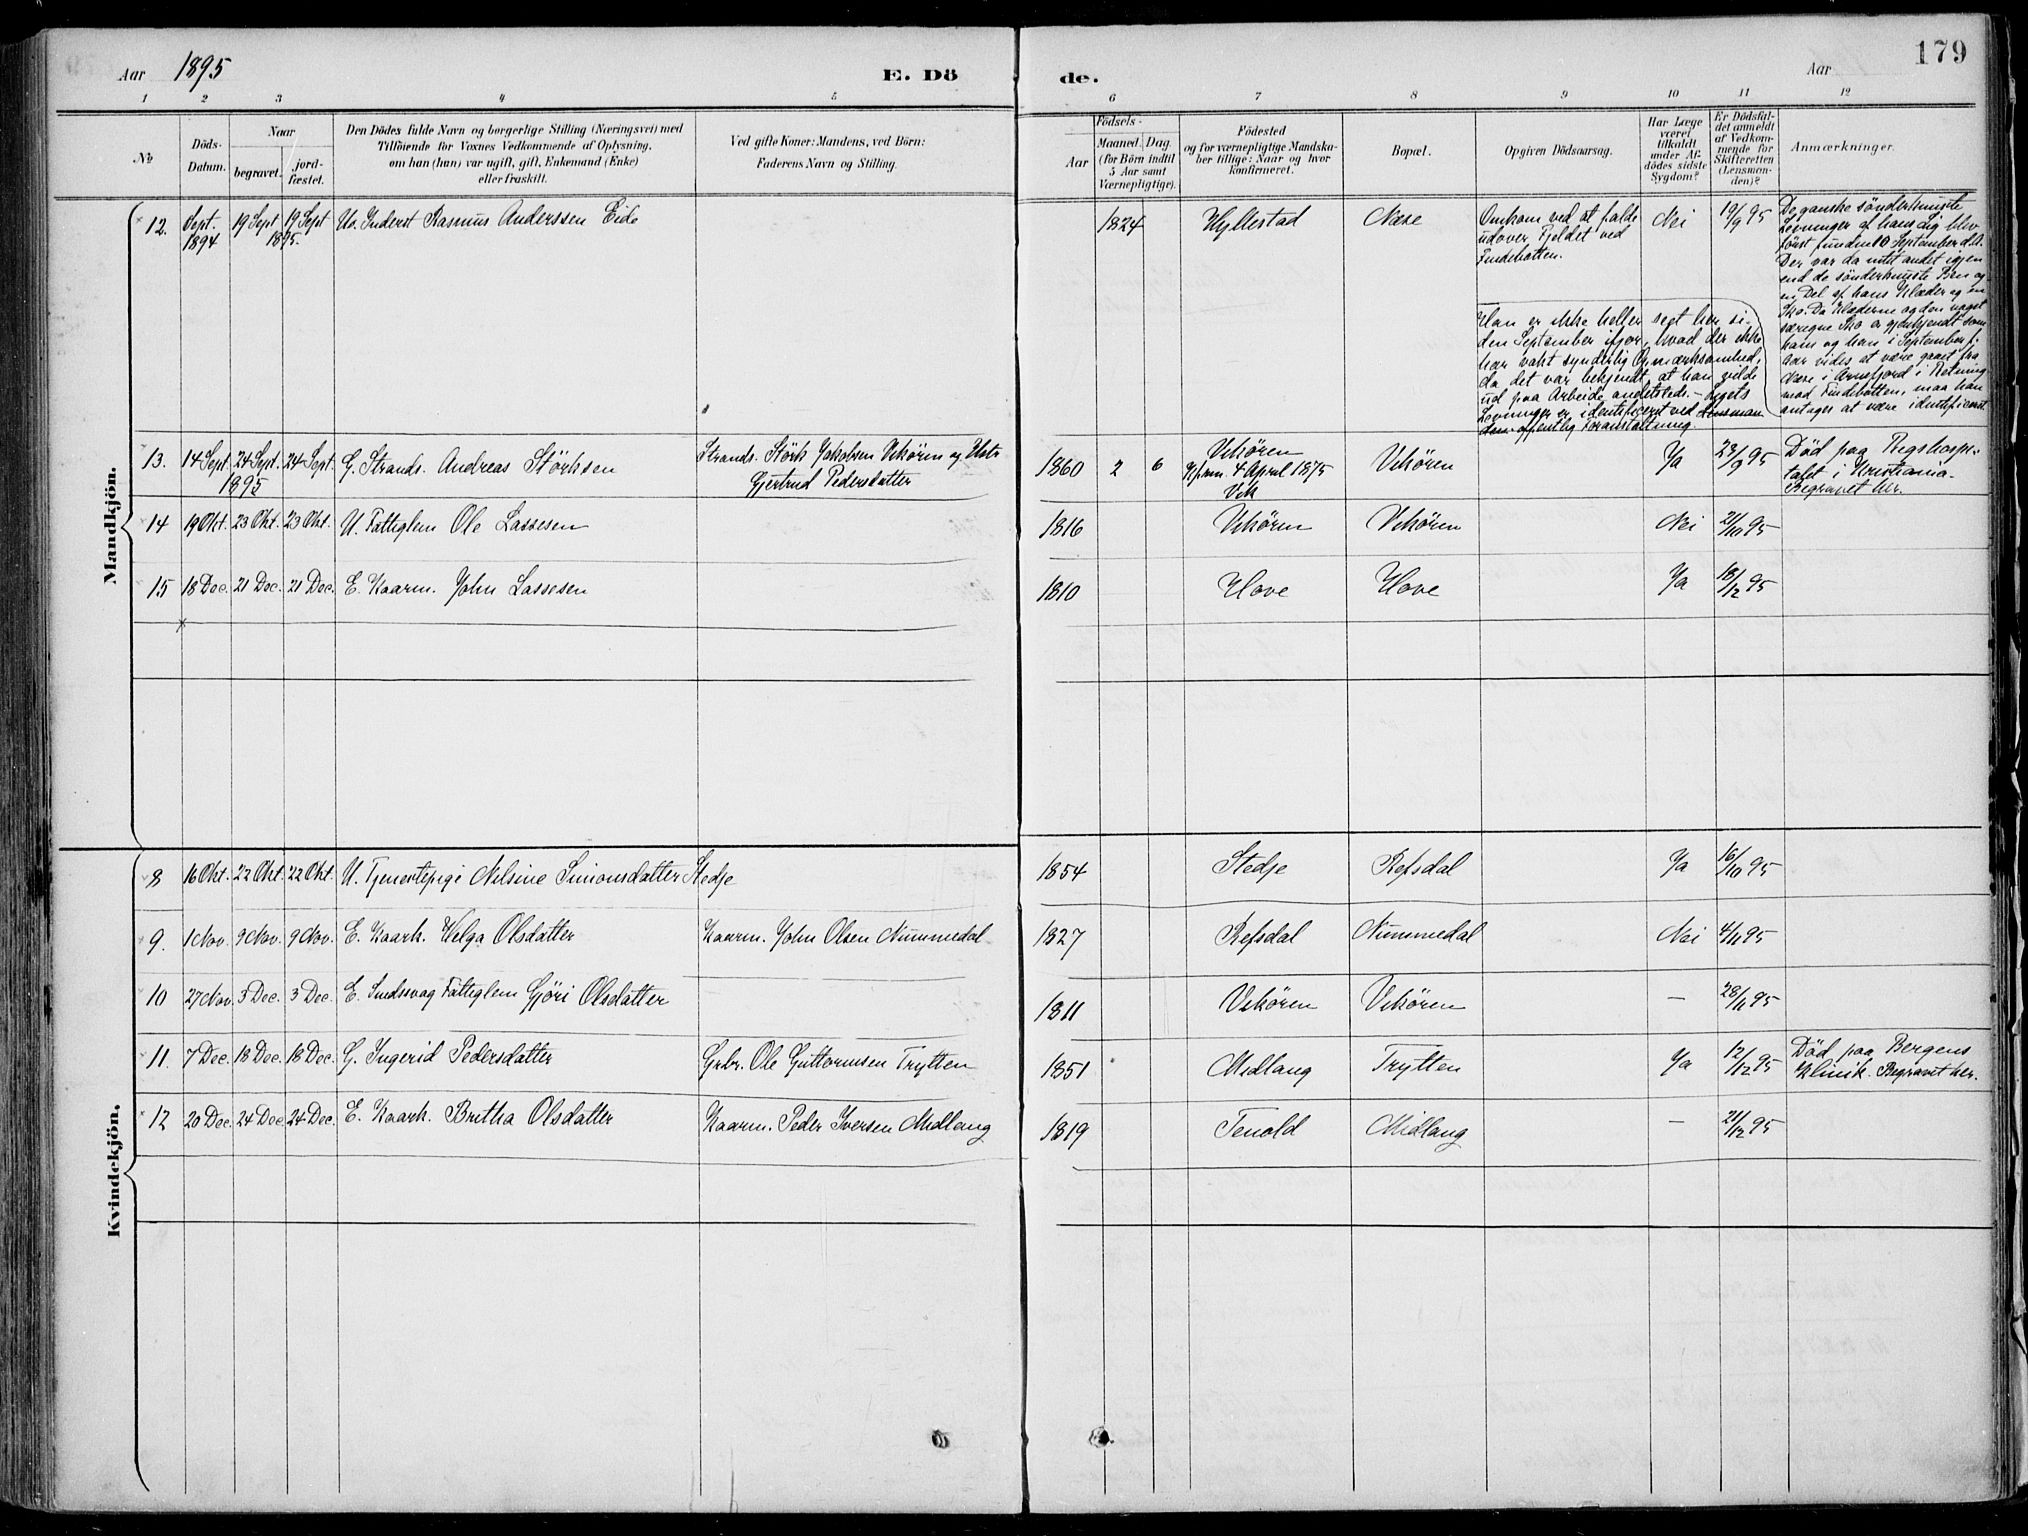 Aar 1895
E. Dö
de.
Aar
179
1 2 3 4 5 6 7 8 9 10 11 12
No
Döds-
Datum.
Naar
begravet.
jord-
fæstet.
Den Dödes fulde Navn og borgerlige Stilling (Næringsvei) med
Tilföiende for Voxnes Vedkommende af Oplysning,
om han (hun) var ugift, gift, Enkemand (Enke)
eller fraskilt.
Ved gifte Koner: Mandens, ved Börn:
Faderens Navn og Stilling.
Födsels-
Aar
Maaned. Dag.
(for Börn indtil
5 Aar samt
Værnepligtige).
Födested
og for værnepligtige Mandska-
ber tillige: Naar og hvor
konfirmeret.
Bopæl.
Opgiven Dödsaarsag.
Har Læge
været
tilkaldt
under Af-
dödes sidste
Sygdom?
Er Dödsfal-
det anmeldt
af Vedkom-
mende for
Skifteretten
(Lensman-
den)?
Anmærkninger.
Mandkjön.
12. Sept. 1894 19 Sept 19 Sept 1895. Inderst Rasmus Anderssen Eide 1824 Hyllestad Næse
Omkom ved at falde
udover Fjeldet ved
Findebotten.
Nei 19/9 95
De ganske sönderknuste
Levninger af hans Lig blev
först funden 10 September d.A.
Der var da intet andet igjen
end de sönderknuste Ben og
en Del af hans Klæder og en
Sko. Da Klæderne og den noget
særegne Sko er gjenkjendt som
hans og han i September f.
Aar vides at være gaaet fra
Næse i Arnefjord i Retning
mod Findebotten, maa han
antages at være identificeret
Han er ikke heller seet her si-
den September ifjor, hvad der ikke
har vakt synderlig Opmærksomhed,
da det var bekjendt, at han vilde
ud paa Arbeide andetsteds. - Ligets
Levninger er identificeret ved Lensman-
den offentlig Foranstaltning.
13. 14 Sept. 24 Sept. 24 Sept. 1895 G. Strands. Andreas Störksen Strands. Störk Jakobsen Vikören og Hstr
Gjertrud Pedersdatter
1860 2 6 Vikören
Kfrm. 4 April 1875
Vik
Vikören Ja 23/9 95 Död paa Rigshospi-
talet i Kristiania.
Begravet her.
14 19 Okt. 23 Okt. 23 Okt. U. Fattiglem Ole Lassesen 1816 Vikören Vikören Nei 21/10 95
15 18 Dec. 21 Dec. 21 Dec. E. Kaarm. John Lassesen 1810 Hove Hove Ja 18/12 95
Kvindekjön.
8 16 Okt. 22 Okt. 22 Okt. U. Tjenestepige Nilsine Simonsdatter Stedje 1854 Stedje Refsdal Ja 16/10 95
9. 1 Nov. 9 Nov. 9 Nov. E. Kaark. Helga Olsdatter Kaarm. John Olsen Nummedal 1827 Refsdal Nummedal Nei 4/11 95
10 27 Nov. 3 Dec. 3 Dec. E. Sindssvag Fattiglem Gjöri Olsdatter 1811 Vikören Vikören — 28/11 95
11. 7 Dec. 18 Dec. 18 Dec. G. Ingerid Pedersdatter Grbr. Ole Guttormsen Trytten 1851 Midlang Trytten Ja 12/12 95 Död paa Bergens
Klinik. Begravet her.
12 20 Dec. 24 Dec. 24 Dec. E. Kaark. Britha Olsdatter Kaarm. Peder Iversen Midlang 1819 Tenold Midlang — 21/12 95